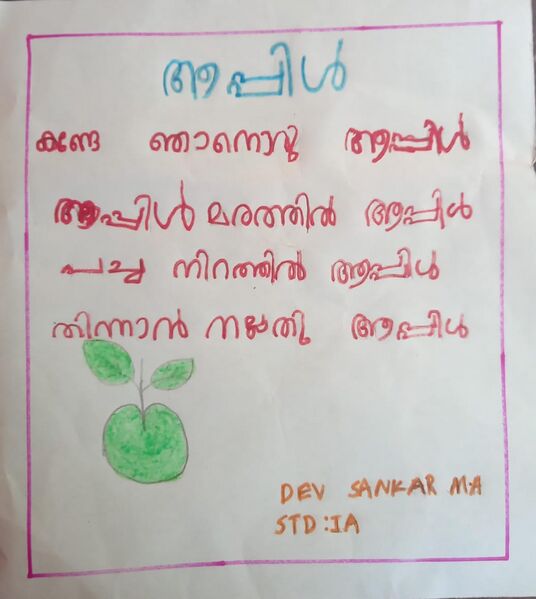 ആപ്പിൾ
കണ്ടേ ഞാനൊരു ആപ്പിൾ
ആപ്പിൾ മരത്തിൽ ആപ്പിൾ
പച്ച നിറത്തിൽ ആപ്പിൾ
തിന്നാൻ നല്ലതു ആപ്പിൾ
DEV SANKAR M.A
STD:IA